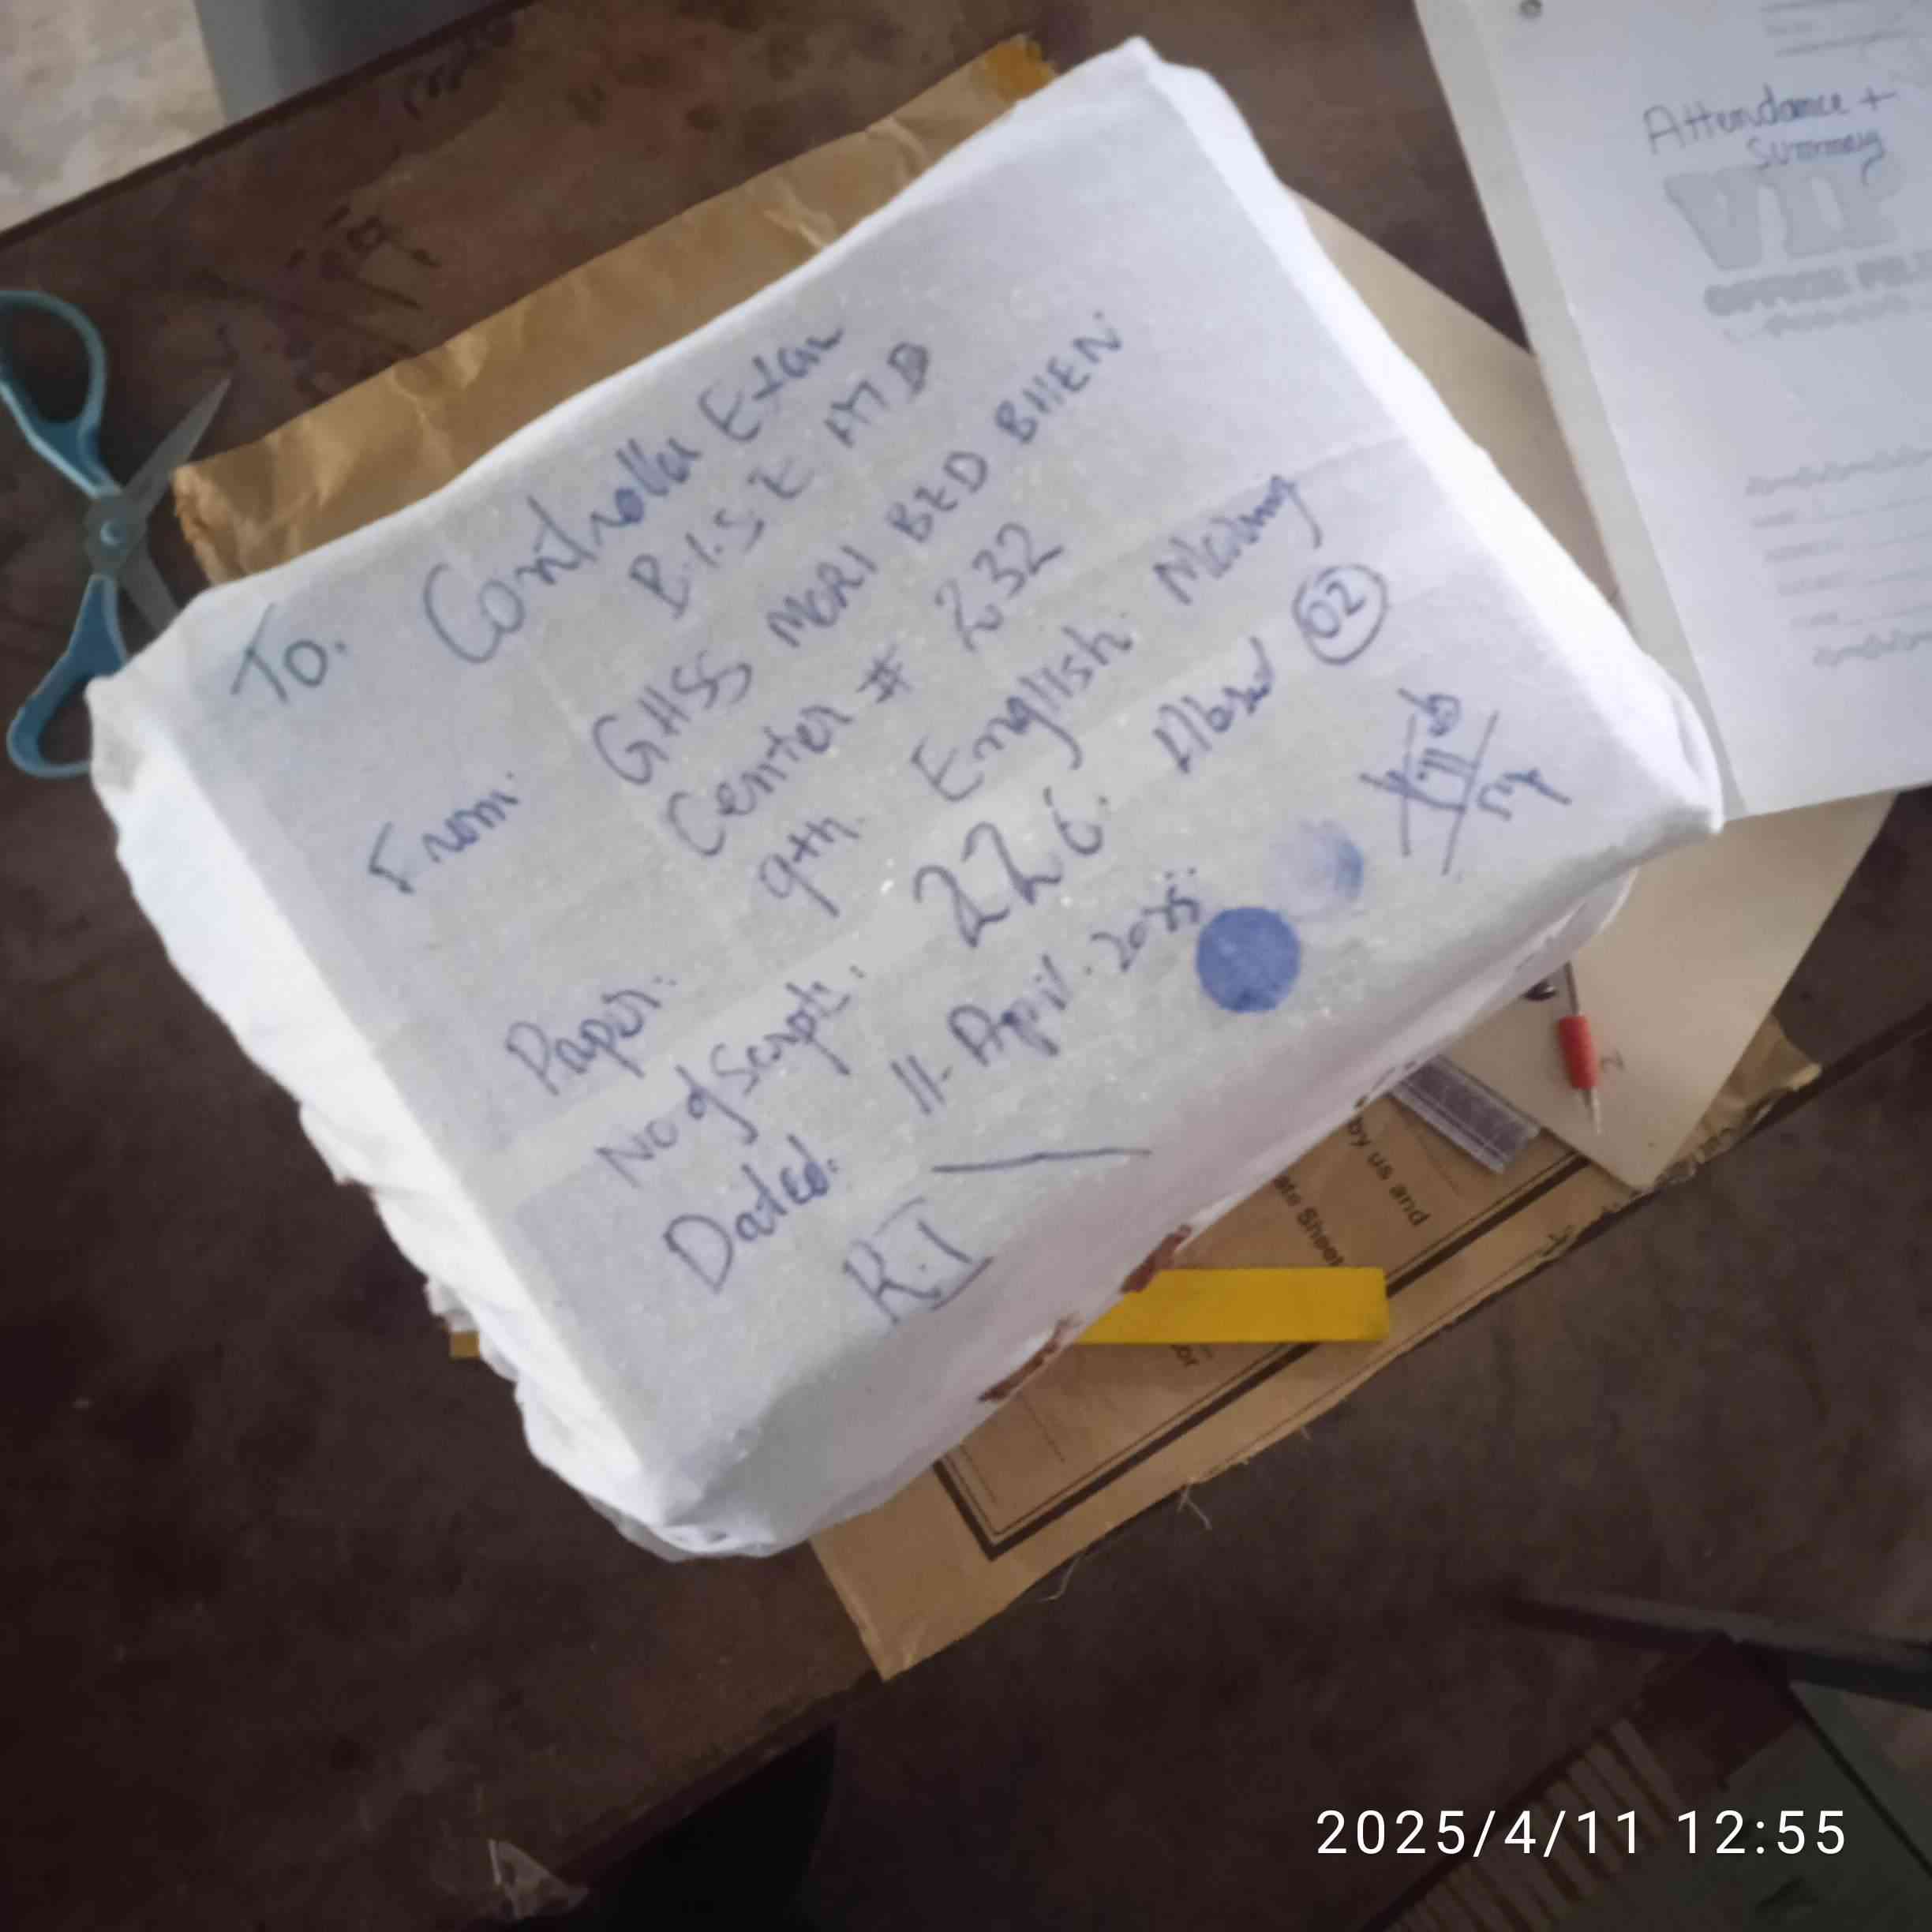 To. Controller Exam
B.I.S.E MD
From: GHSS MORI BED BHEN.
Center # 232
Paper: 9th. English. Morning
No of Scripts: 226. Absent 02
Dated. 11- April. 2025.
R.T
Attendance +
Summary
VIP
OFFICE FILE
by us and
ate Sheet
or
2025/4/11 12:55